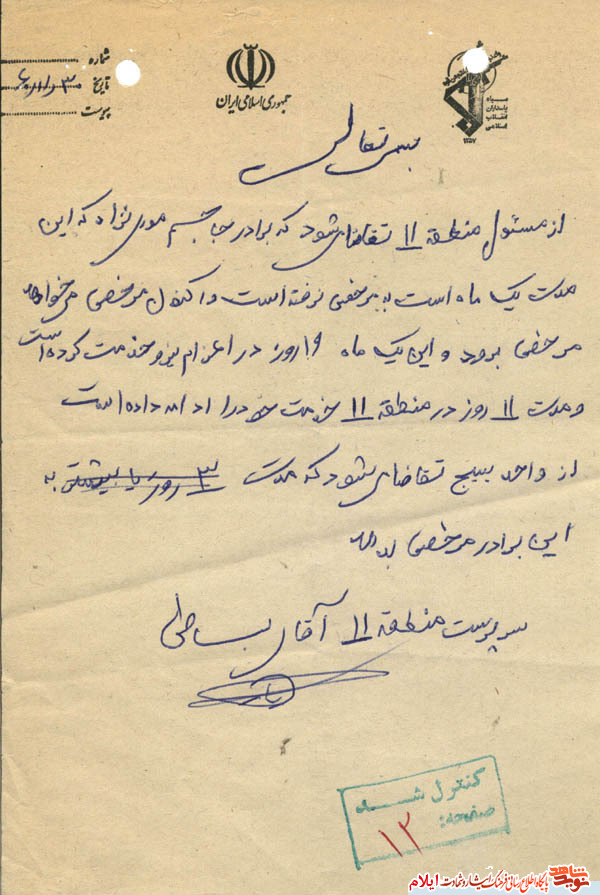 شماره
تاریخ ۶۰/۱۱/۳۰
پیوست
جمهوری اسلامی ایران
سپاه
پاسداران
انقلاب
اسلامی
۱۳۵۷
بسمه تعالی
از مسئول منطقه ۱۱ تقاضا می شود که برادر جاسم موری نژاد که این
مدت یک ماه است به مرخصی نرفته است و اکنون مرخصی می خواهد
مرخصی برود و این یک ماه ۱۹ روز در اعزام نیرو خدمت کرده است
و مدت ۱۱ روز در منطقه ۱۱ خدمت خود را ادامه داده است
از واحد بسیج تقاضا می شود که مدت ۳ روز یا بیشتر به
این برادر مرخصی بدهد
سرپرست منطقه ۱۱ آقای بساطی
کنترل شد
صفحه: ۱۲
نوید شاهد پایگاه اطلاع رسانی فرهنگ ایثار و شهادت ایلام